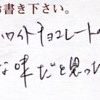 お書き下さい。
ホワイトチョコレートの
な味だと思った